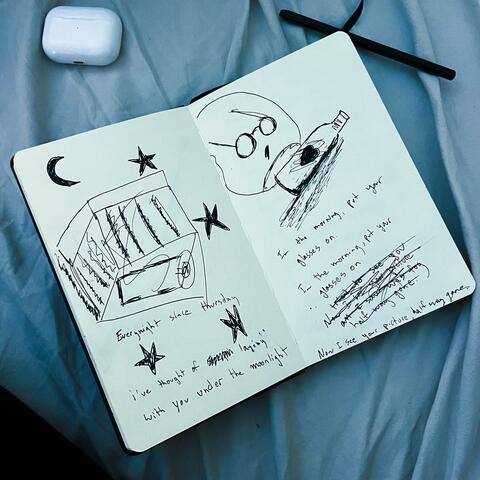 Everynight since thursday,
i've thought of laying
with you under the moonlight
In the morning, put your
glasses on.
In the morning, put your
glasses on.
Now I see your picture half way gone.